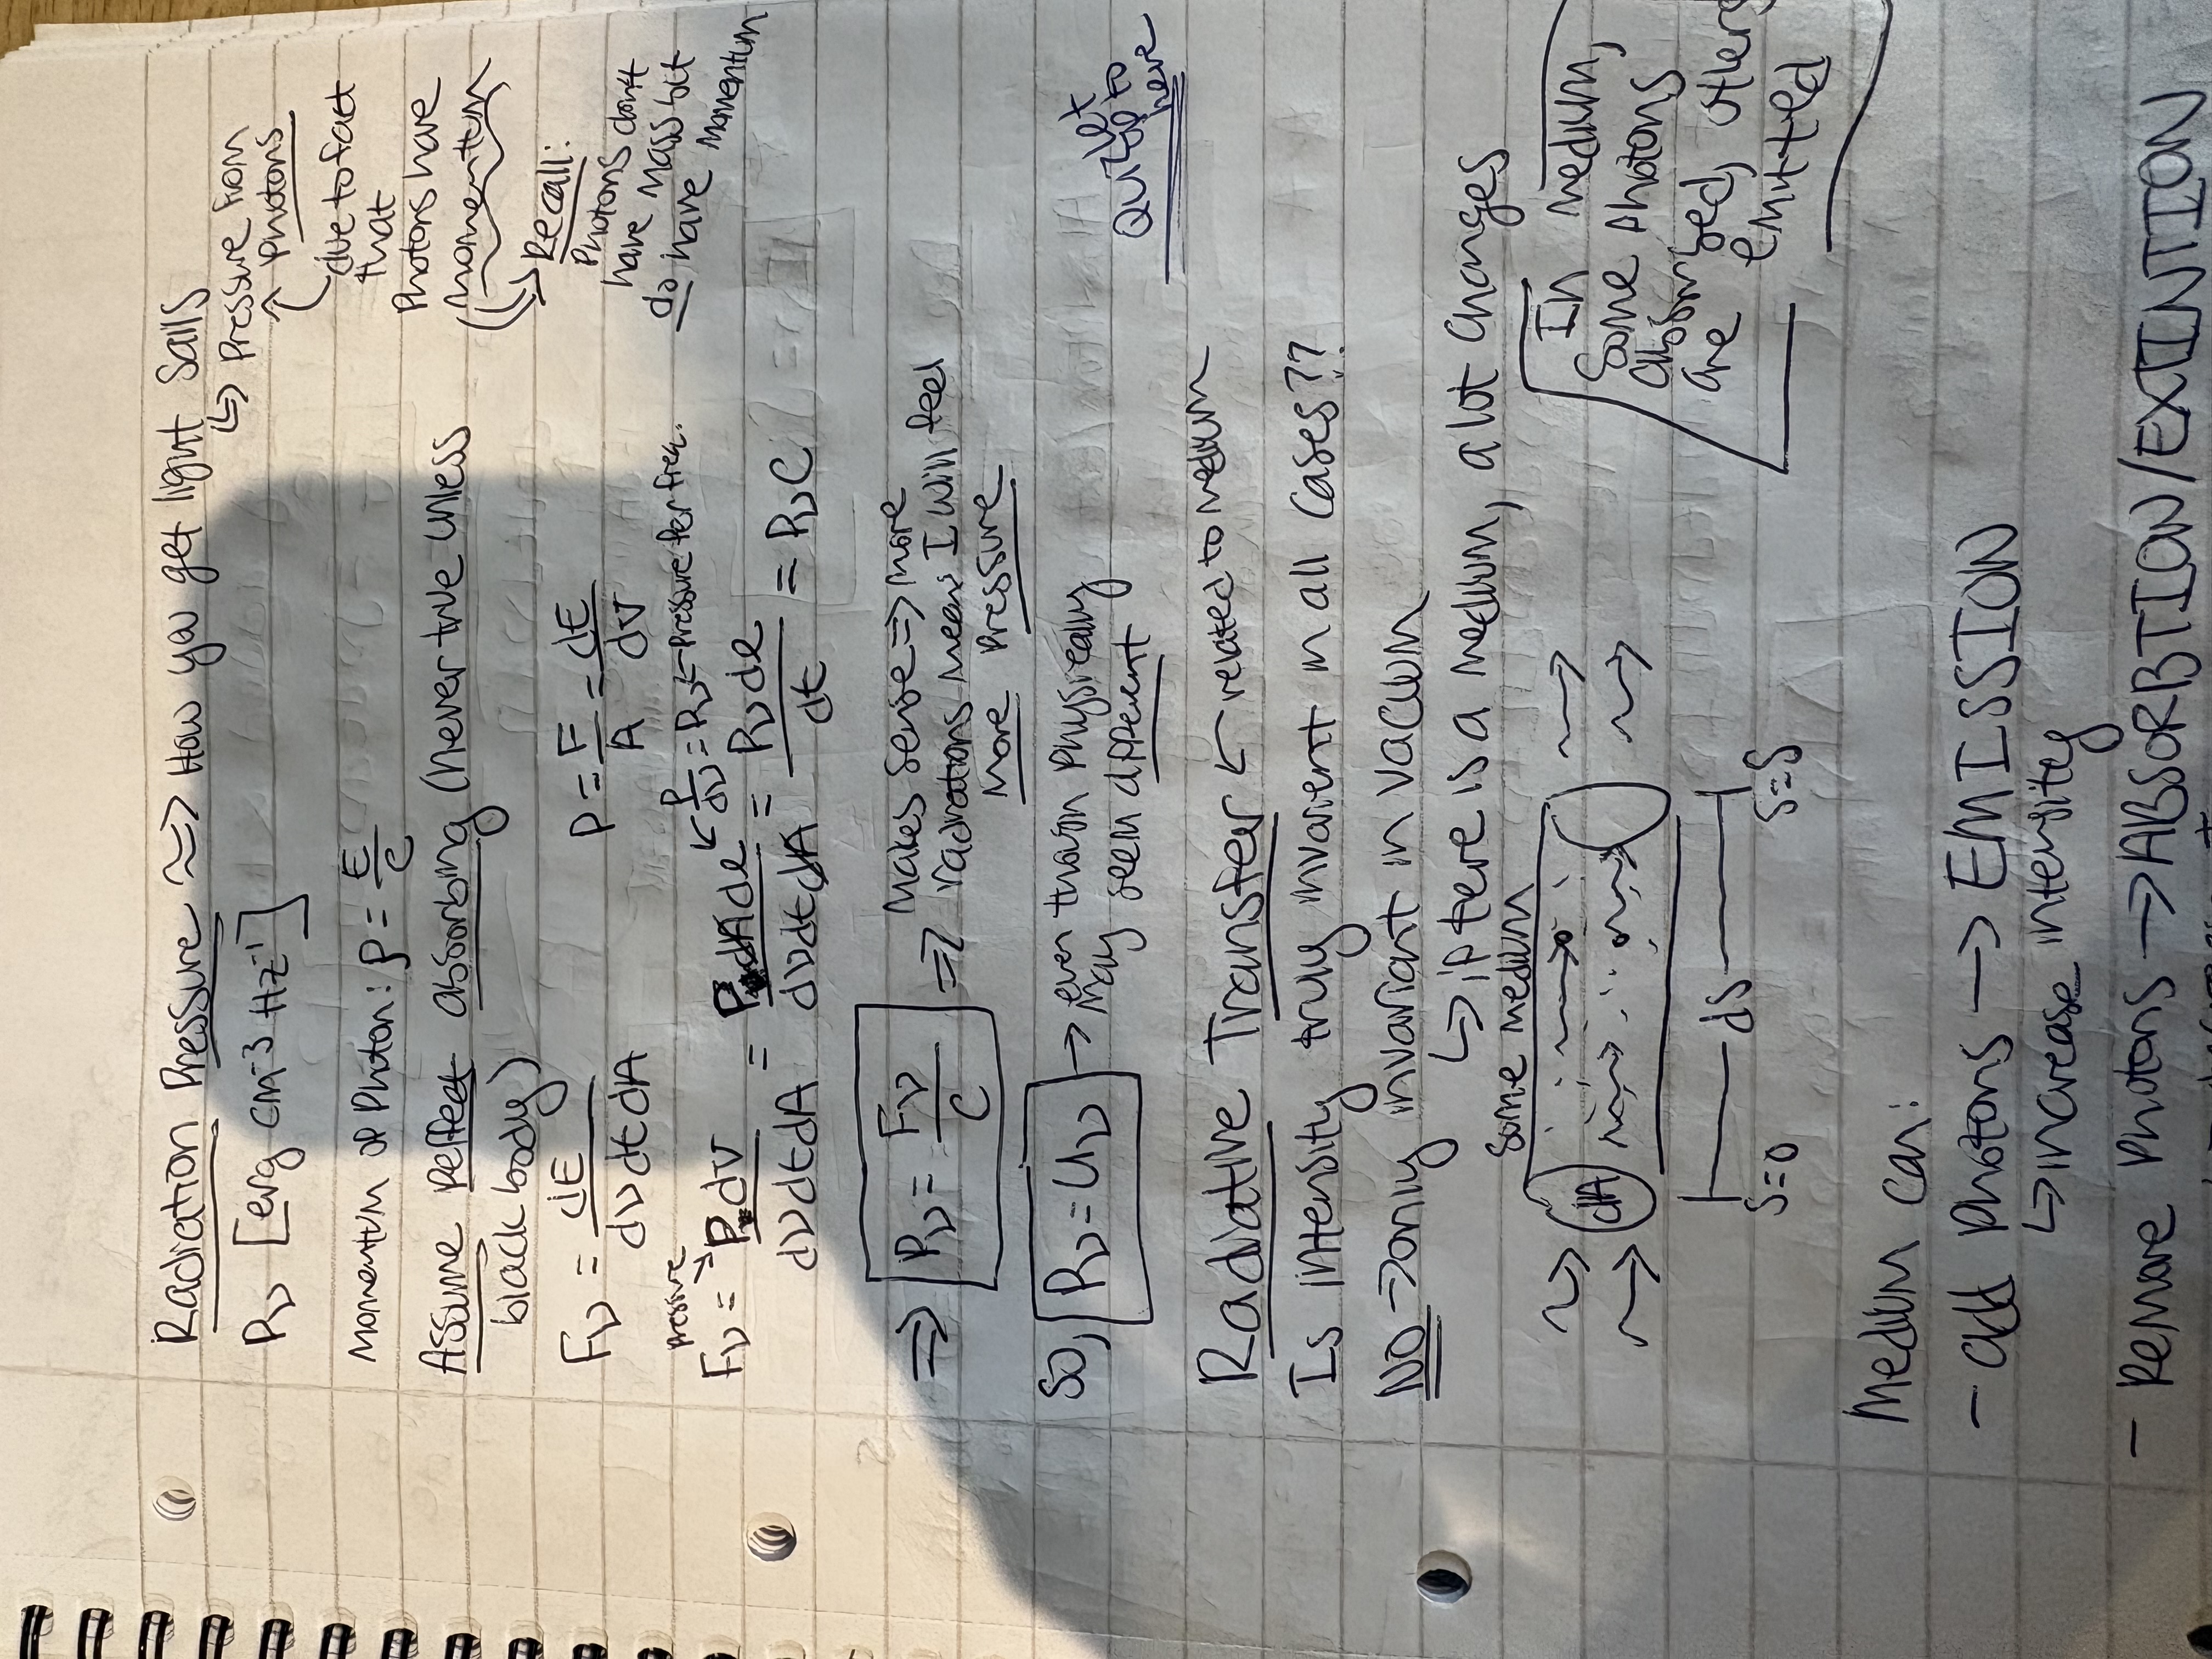 Radiation Pressure => How you get light sails
↳ Pressure from photons
due to fact
that
Photons have
(momentum)
Recall:
Photons dont
have mass but
do have momentum
Pν [erg cm⁻³ Hz⁻¹]
Momentum of Photon: p = E/c
Assume perfect absorbing (never true unless
black body)
Fν = dE / dν dt dA
P = F/A = dE/dV
pressure
Fν = P dV / dν dt dA = P dA dl / dν dt dA = Pν dl / dt = Pν C
P/dν = Pν ← pressure per freq.
=> Pν = Fν/c => makes sense => more
radiations means I will feel
more pressure
So, Pν = uν → even though physically
may seem different
Quiz 1 up to
here
Radiative Transfer ← related to medium
Is intensity truly invarient in all cases??
No → only invariant in vacuum
↳ if there is a medium, a lot changes
some medium
dA
In medium,
some photons
absorbed, others
are emitted
ds
s=0
s=s
Medium can:
- add photons → EMISSION
↳ increase intensity
- Remove photons → ABSORBTION/EXTINTION